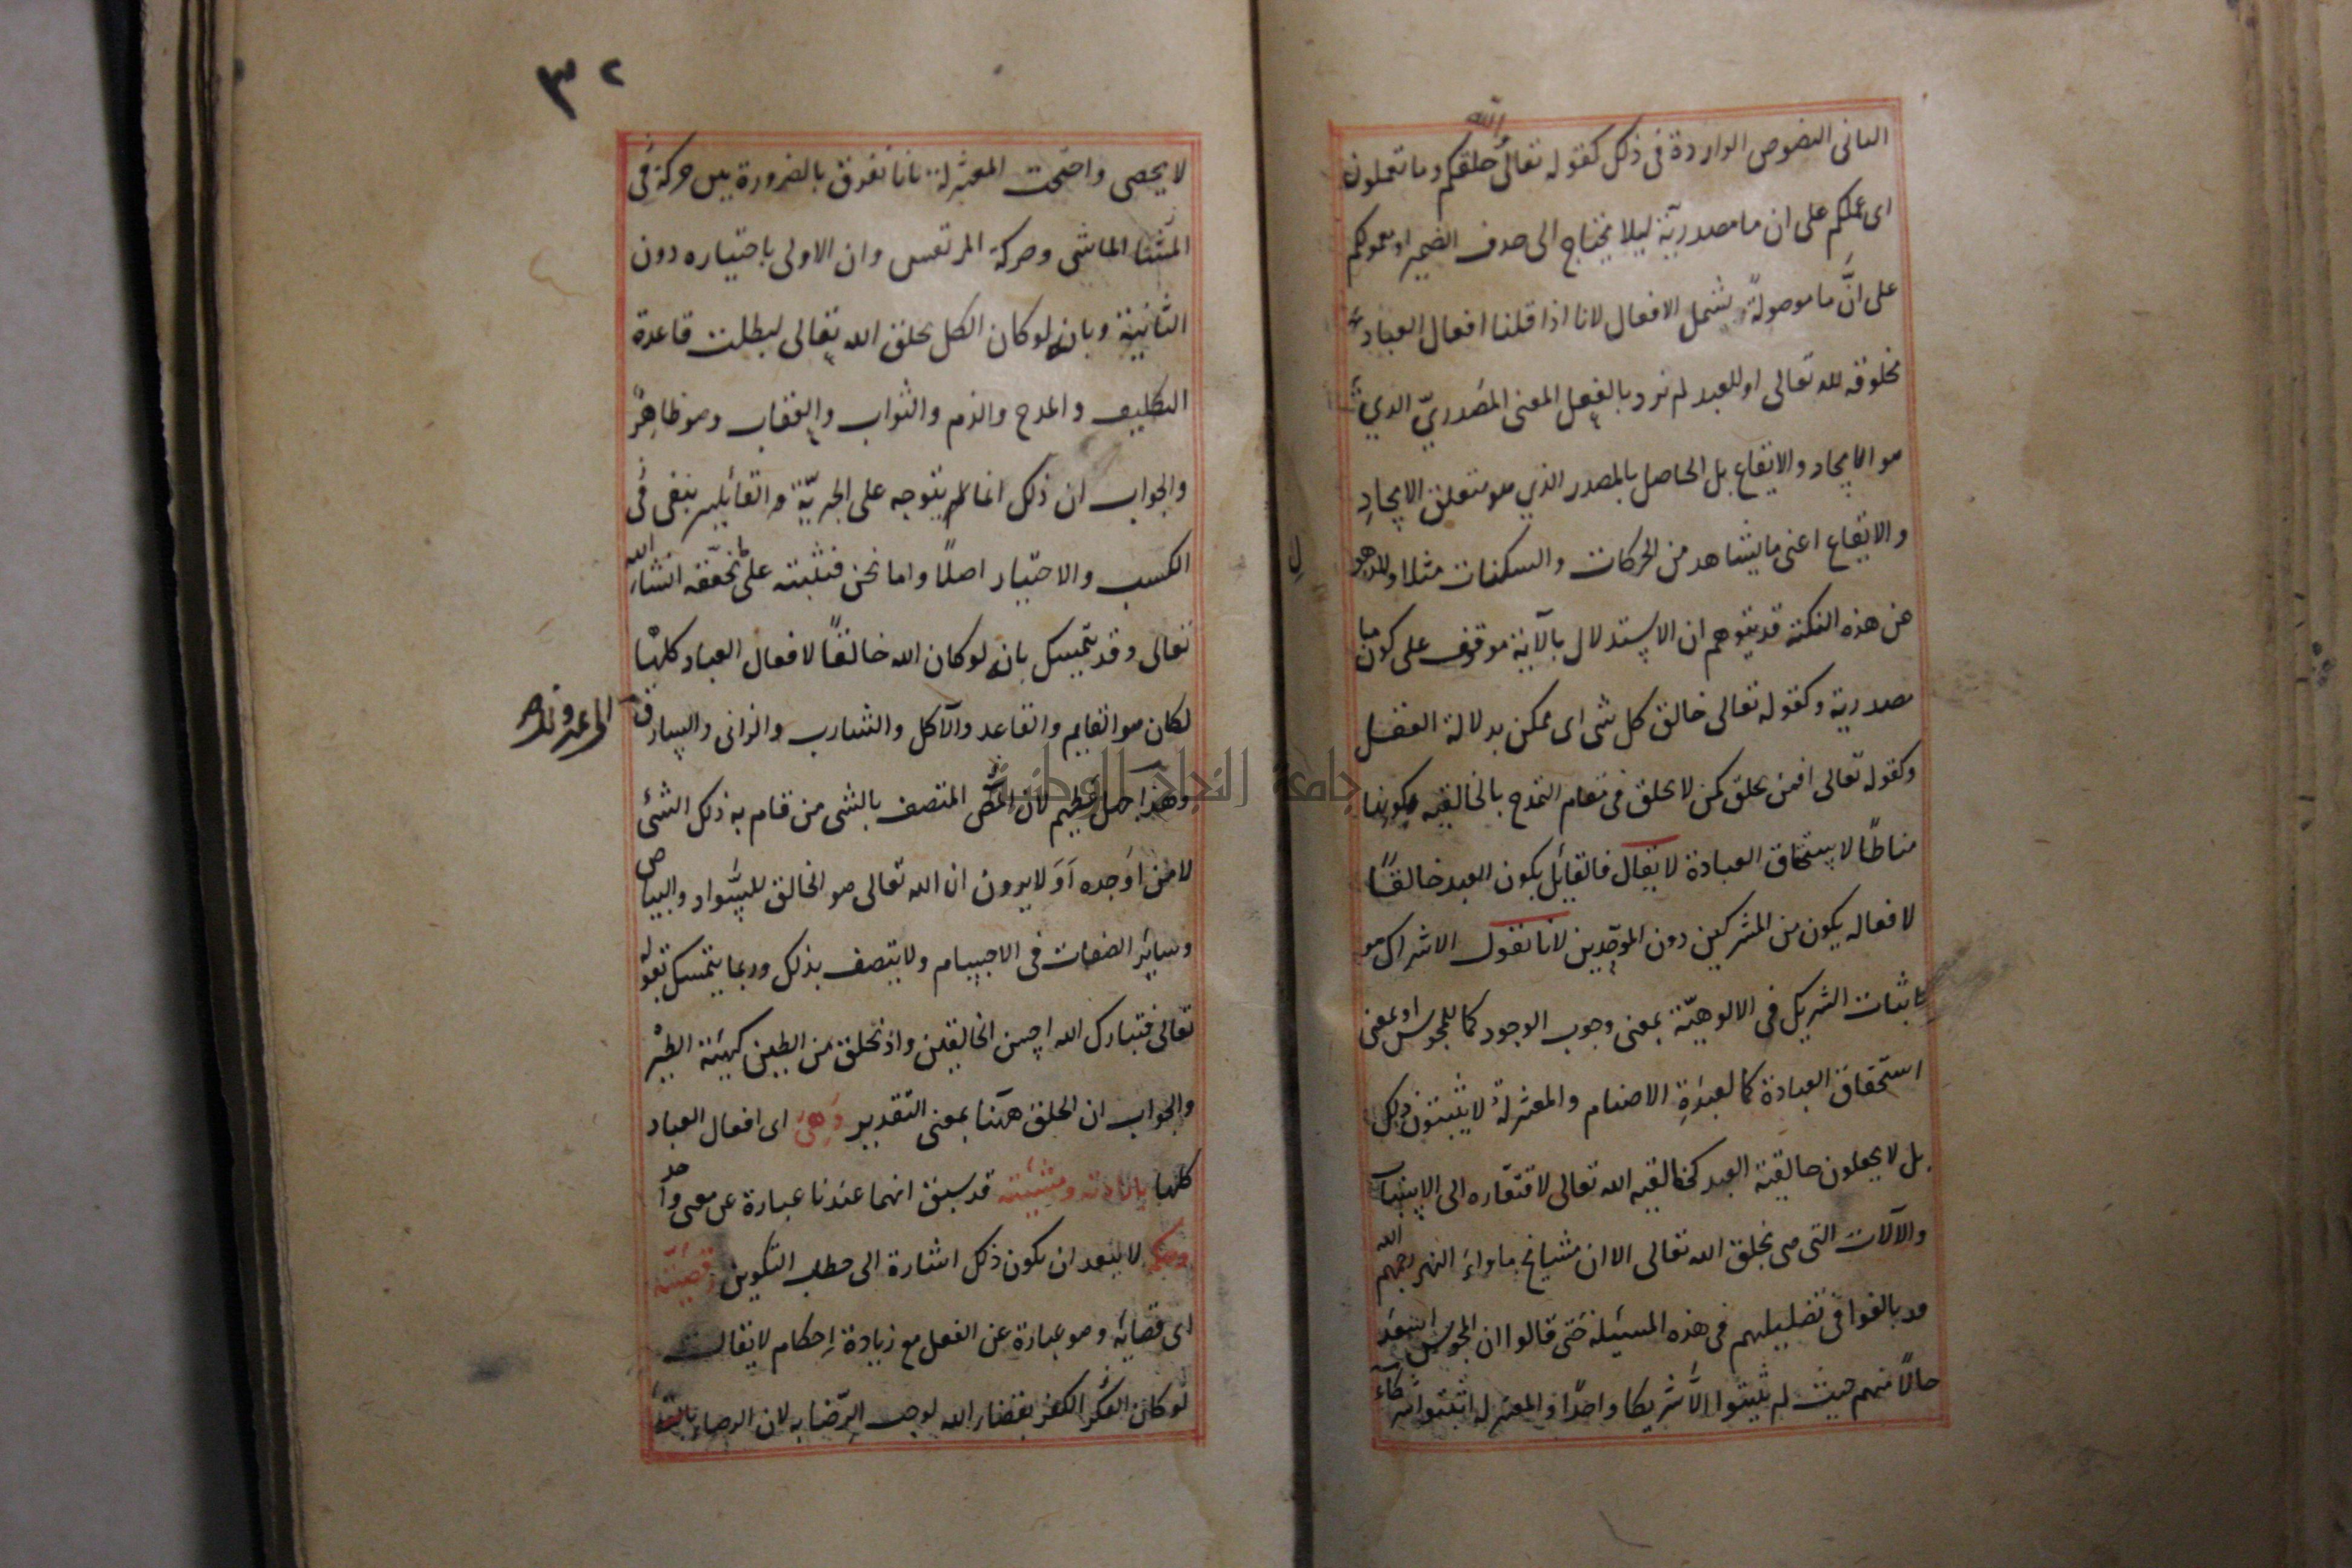 الثانى النصوص الواردة فى ذلك كقوله تعالى والله خلقكم وما تعملون
اى عملكم على ان ما مصدرية ليلا يحتاج الى حذف الضمير او معمولكم
على انَّ ما موصولةً ويشمل الافعال لانا اذا قلنا افعال العباد
مخلوقه لله تعالى او للعبد لم نرد بالفعل المعنى المصدريّ الذي
هو الايجاد والايقاع بل الحاصل بالمصدر الذي هو متعلق الايجادِ
والايقاع اعنى ما يشاهد من الحركات والسكنات مثلا وللذهول
عن هذه النكته قد يتوهم ان الاستدلال بالآية موقوف على كون ما
مصدرية وكقوله تعالى خالق كل شى اى ممكن بدلالة العقل
وكقوله تعالى افمن يخلق كمن لا يخلق فى مقام التمدح بالخالقيه وكونها
مناطًا لاستحقاق العبادة لا يقال فالقايل بكون العبد خالقًا
لافعاله يكون من المشركين دون الموحّدين لانا نقول الاشراك هو
اثبات الشريك فى الالوهيّة بمعنى وجوب الوجود كما للمجوس او بمعنى
استحقاق العبادة كما لعبدةِ الاصنام والمعتزلة لا يثبتون ذلك
بل لا يجعلون خالقية العبد كخالقيه الله تعالى لافتقاره الى الاسباب
والآلات التى هى بخلق الله تعالى الا ان مشايخ ماوراء النهر رحمهم الله
قد بالغوا فى تضليلهم فى هذه المسئلة حتى قالوا ان المجوس اسعد
حالاً منهم حيث لم يثبتوا الَّا شريكا واحدًا والمعتزله اثبتوا شركآء
٣٢
لا يحصى واحتجت المعتزلة بانا نفرق بالضرورة بين حركة فى
المشا الماشى وحركة المرتعس وان الاولى باختياره دون
الثانية وبانه لو كان الكل بخلق الله تعالى لبطلت قاعدة
التكليف والمدح والذم والثواب والعقاب وهو ظاهرٌ
والجواب ان ذلك انما يتوجه على الجبريّة والقائلين بنفى فى
الكسب والاختيار اصلًا واما نحن فنثبته على ما نحققه انشا الله
تعالى وقد يتمسك بانه لو كان الله خالقًا لافعال العباد كلها
لكان هو القايم والقاعد والآكل والشارب والزانى والسارق
الى غير ذلك
وهذا جهل عظيم لان المتصف بالشى من قام به ذلك الشئ
لا من اوجده اَوَ لا يرون ان الله تعالى هو الخالق للسواد والبياض
وساير الصفات فى الاجسام ولا يتصف بذلك وربما يتمسك بقوله
تعالى فتبارك الله احسن الخالقين واذ تخلق من الطين كهيئة الطير
والجواب ان الخلق ههنا بمعنى التقدير وهى اى افعال العباد
كلها بارادته ومشيئته قد سبق انهما عندنا عبارة عن معنى واحد
وحكمه لا يبعد ان يكون ذلك اشارة الى خطاب التكوين وقضيّته
اى قضايه وهو عبارة عن الفعل مع زيادة احكام لا يقال
لو كان الكفر بقضاء الله لوجب الرّضا به لان الرضاء بالقضا
جامعة النجاح الوطنية